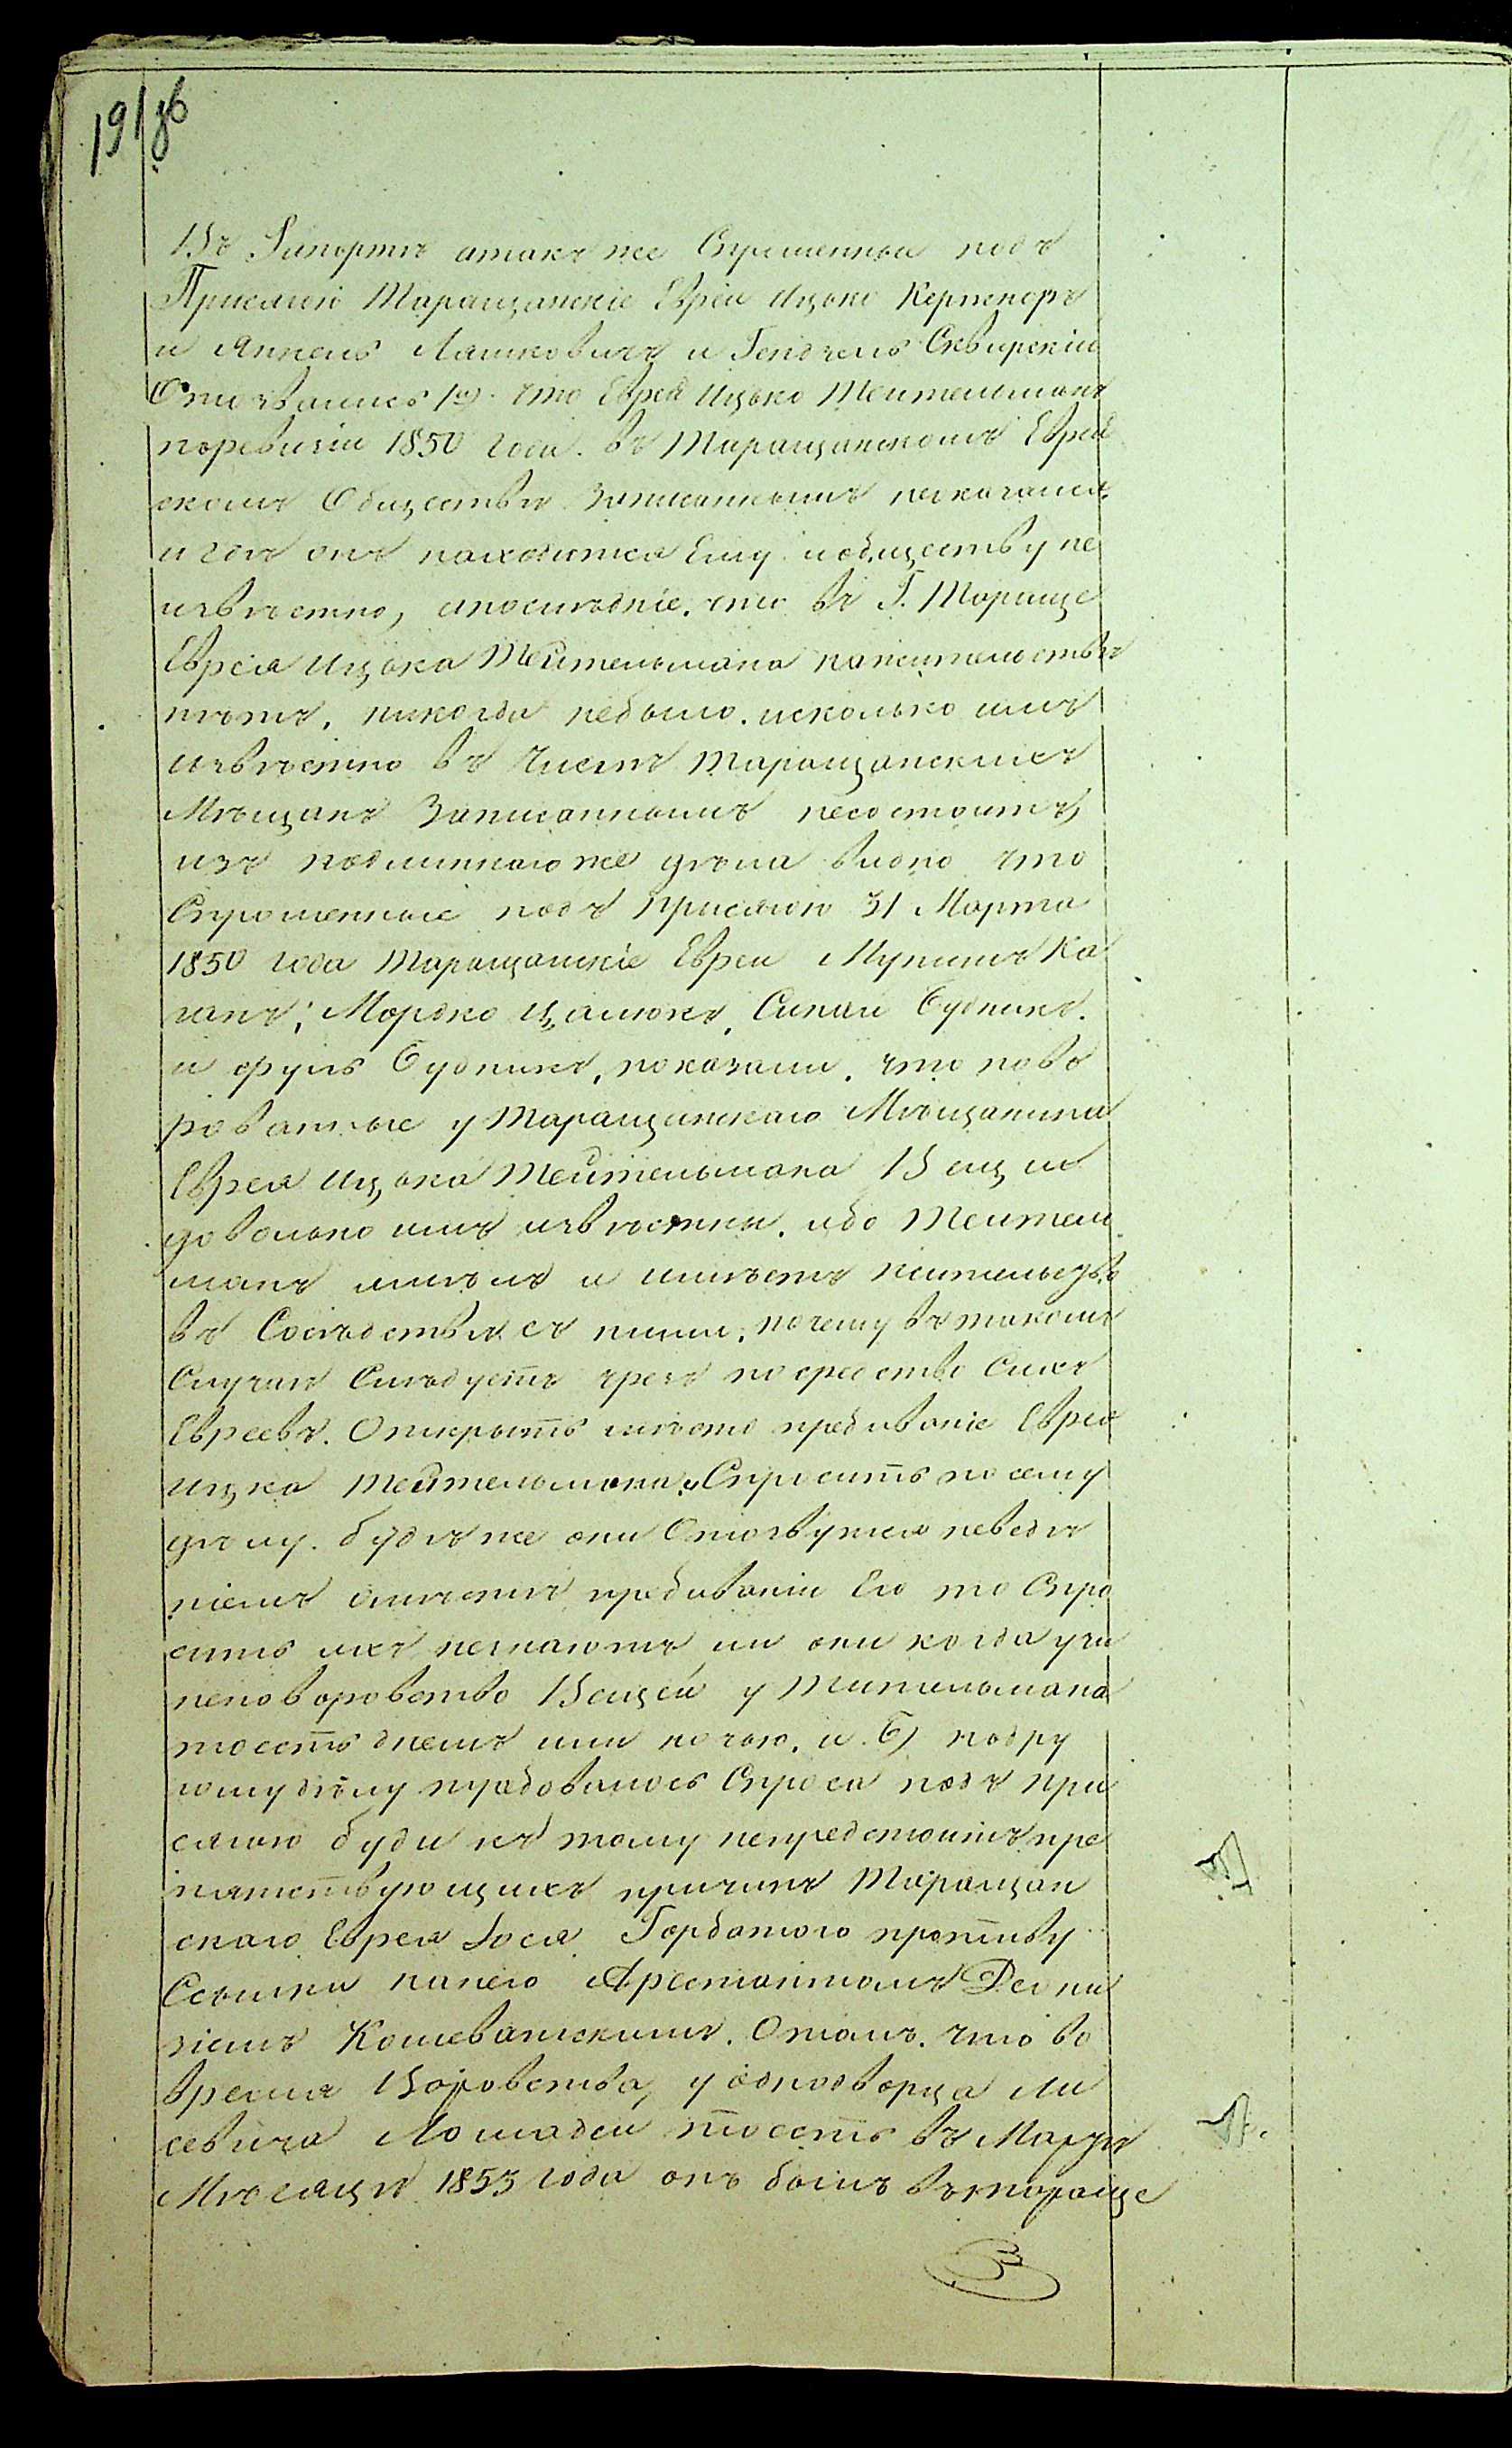 191 об
Въ Рапортѣ атакъ же Спрошенныи подъ
Присягою Таращанскіе Евреи Ицько
и Янкель Ляшковичъ и Гендзель Сквирскій
Отозвались 1й. что Еврей Ицько Тейтельманъ
поревизіи 1850 года. въ Таращанскомъ Еврей
скомъ Обществѣ Записаннымъ незначится,
и гдѣ онъ находится Ему и обществу не
извѣстно, апослѣдніе. что въ Г. Тараще
Еврея Ицька Тейтельмана нажительствѣ
нѣтъ, никогда небыло. исколько имъ
извѣстно въ Числѣ Таращанскихъ
Мѣщанъ Записаннымъ несостоитъ,
изъ подлиннаго же дѣла видно что
Спрошенные подъ присягою 31 Марта
1850 года Таращанскіе Евреи Мунишъ Ка
ганъ; Мордко Цалюкъ, Синай Будникъ.
и сруль Будникъ, показали. что пово
рованные у Таращанскаго Мѣщанина
Еврея Ицька Тейтельмана Вещи
довольно имъ извѣстны. ибо Тейтель
манъ имѣлъ и имѣетъ жительство
въ Сосѣдствѣ съ ними. почему въ такомъ
Случаѣ Слѣдуетъ чрезъ посредство Сихъ
Евреевъ. Открыть мѣсто пребиваніе Еврея
Ицка Тейтельмана, и Спросить по сему
дѣлу. будѣ же они Отозвутся неведѣ
ніемъ омѣстѣ пребиваніи Его то Спро
сить ихъ незнаютъ ли они когда учи
нено воровство Вещей у Тительмана
тоесть днемъ или ночью. и. б) подру
гому дѣлу требовалось Спроса подъ при
сягою буди къ тому непредстоитъ пре
пятствующихъ причинъ Таращан
скаго Еврея Іося Горбатого противу
Ссылки нанего Арестантомъ
Кошеватскимъ. Отомъ. что во
время Воровства, у однодворца Ли
севича Лошадей тоесть въ Мартѣ
Мѣсяцѣ 1853 года онъ былъ въ тараще